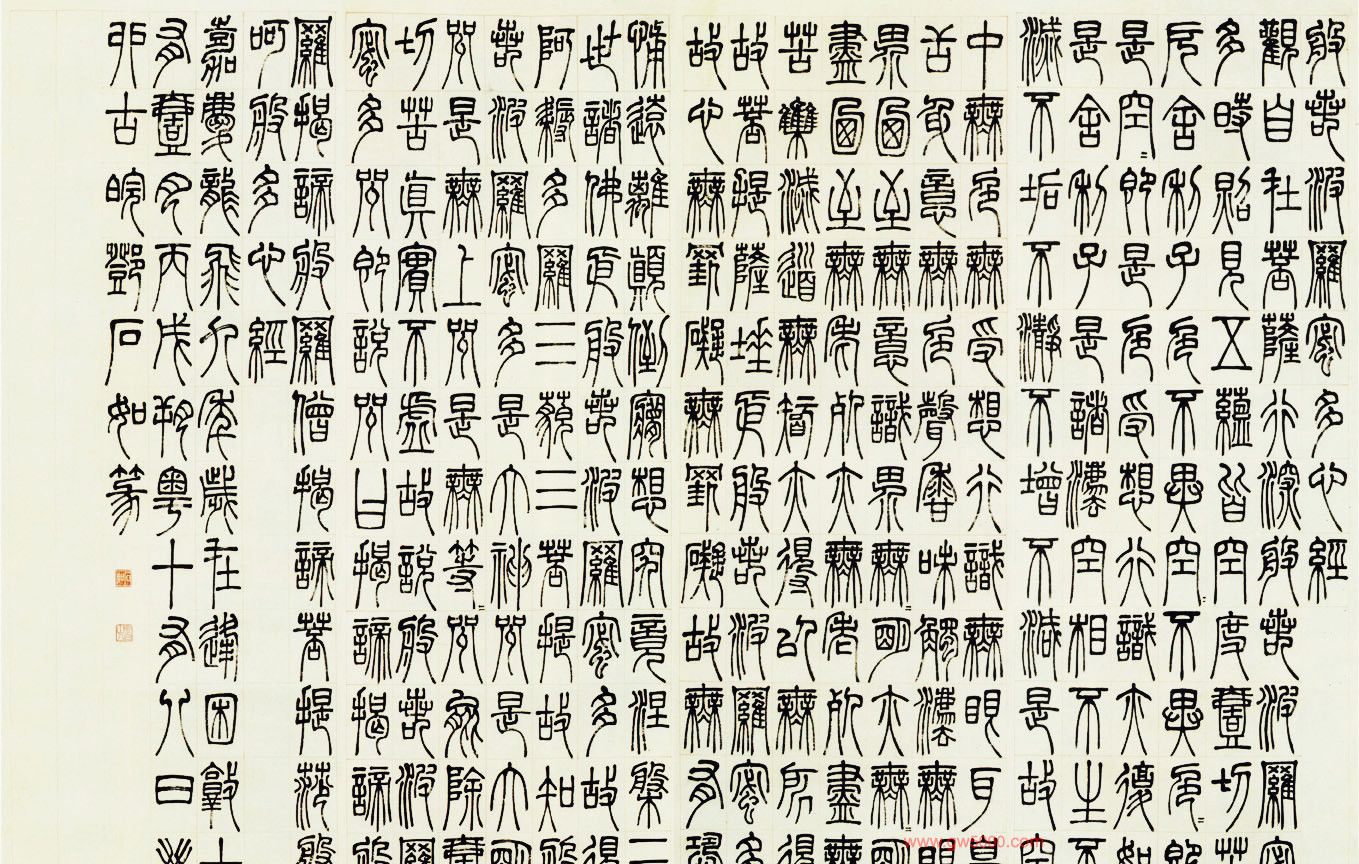 般若波羅蜜多心經
觀自在菩薩行深般若波羅蜜
多時照見五蘊皆空度壹切苦
厄舍利子色不異空=不異色=即
是空=即是色受想行識亦復如
是舍利子是諸法空相不生不
滅不垢不淨不增不減是故空
中無色無受想行識無眼耳鼻
舌身意無色聲香味觸法無
界乃至無意識界無=明亦無=明
盡乃至無老死亦無老死盡無
苦集滅道無智亦得以無所得
故菩提薩埵依般若波羅蜜多
故心無罣礙無罣礙故無有恐
怖遠離顛倒夢想究竟涅槃三
世諸佛依般若波羅蜜多故得
阿耨多羅三藐三菩提故知般
若波羅蜜多是大神咒是大明
咒是無上咒是無等=咒能除壹
切苦真實不虛故說般若波羅
蜜多咒即說咒曰揭諦揭諦般
羅揭諦般羅僧揭諦菩提莎般
呵般多心經
嘉慶龍飛九年歲在逢困敦十
有壹月丙戌朔粵十有八日
古皖鄧石如篆